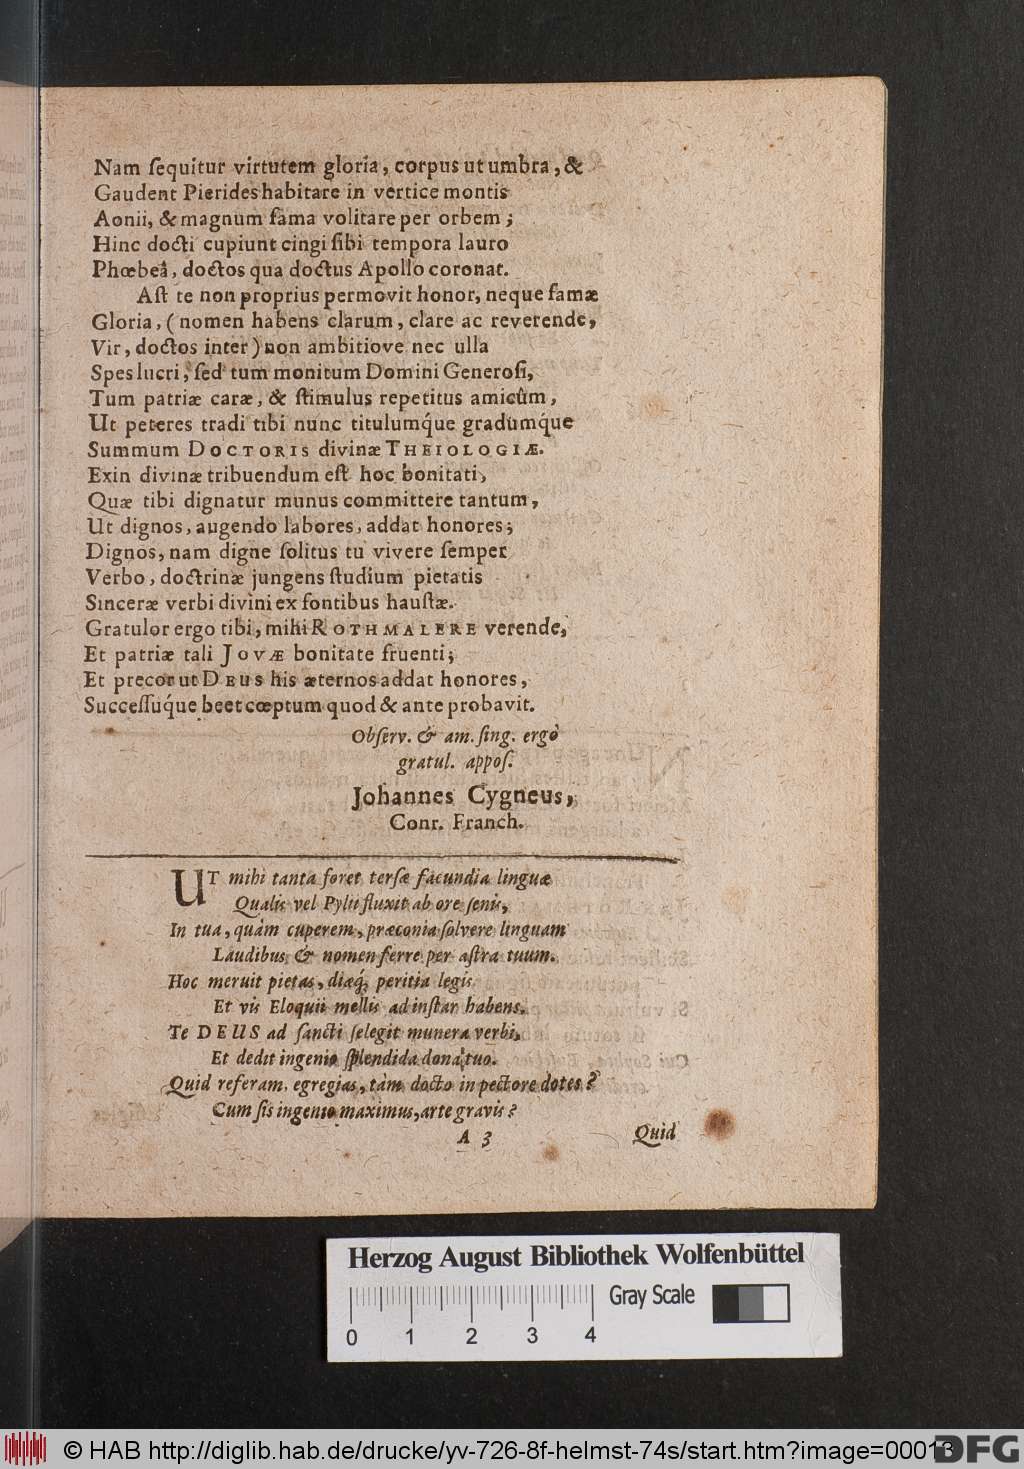 Nam ſequitur virtutem gloria, corpus ut umbra, &
Gaudent Pierides habitare in vertice montis
Aonii, & magnum fama volitare per orbem;
Hinc docti cupiunt cingi ſibi tempora lauro
Phœbeâ, doctos qua doctus Apollo coronat.
Aſt te non proprius permovit honor, neque famæ
Gloria, (nomen habens clarum, clare ac reverende,
Vir, doctos inter) non ambitiove nec ulla
Spes lucri, ſed tum monitum Domini Generoſi,
Tum patriæ caræ, & ſtimulus repetitus amicûm,
Ut peteres tradi tibi nunc titulumq́ue gradumq́ue
Summum DOCTORIS divinæ THEIOLOGIÆ.
Exin divinæ tribuendum eſt hoc bonitati,
Quæ tibi dignatur munus committere tantum,
Ut dignos, augendo labores, addat honores;
Dignos, nam digne ſolitus tu vivere ſemper
Verbo, doctrinæ jungens ſtudium pietatis
Sinceræ verbi divini ex fontibus hauſtæ.
Gratulor ergo tibi, mihi ROTHMALERE verende,
Et patriæ tali JOVÆ bonitate fruenti;
Et precor ut DEUS his æternos addat honores,
Succeſſúque beet cœptum quod & ante probavit.
Obſerv. & am. ſing. ergò
gratul. appoſ.
Johannes Cygneus,
Conr. Franch.
UT mihi tanta foret terſæ facundia linguæ
Qualis vel Pylii fluxit ab ore ſenis,
In tua, quàm cuperem, præconia ſolvere linguam
Laudibus & nomen ferre per aſtra tuum.
Hoc meruit pietas, diæq́; peritia legis
Et vis Eloquii mellis ad inſtar habens.
Te DEUS ad ſancti ſelegit munera verbi,
Et dedit ingenio ſplendida dona tuo.
Quid referam, egregias, tàm docto in pectore dotes?
Cum ſis ingenio maximus, arte gravis?
A 3
Quid
Herzog August Bibliothek Wolfenbüttel
Gray Scale
0 1 2 3 4
© HAB http://diglib.hab.de/drucke/yv-726-8f-helmst-74s/start.htm?image=00013
DFG